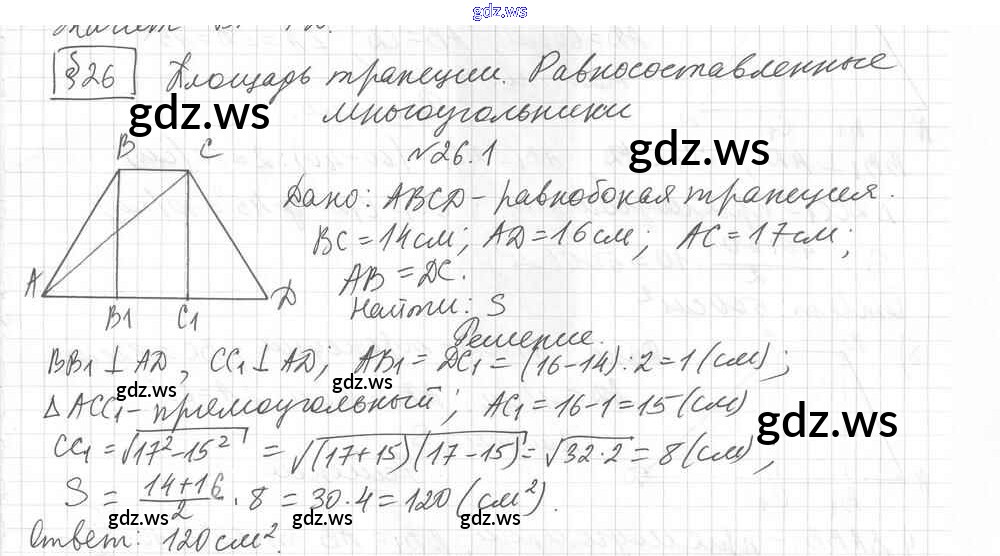 gdz.ws
§26 Площадь трапеции. Равносоставленные
многоугольники
gdz.ws
gdz.ws
№26.1
B C
Дано: ABCD - равнобокая трапеция.
BC = 14 см; AD = 16 см; AC = 17 см;
AB = DC.
A D
B1 C1
Найти: S
Решение.
BB1 ⊥ AD, CC1 ⊥ AD; AB1 = DC1 = (16-14):2 = 1 (см);
gdz.ws gdz.ws
△ACC1 - прямоугольный; AC1 = 16-1 = 15 (см)
gdz.ws
CC1 = √17²-15² = √(17+15)(17-15) = √32·2 = 8 (см),
S = 14+16/2 · 8 = 30·4 = 120 (см²).
gdz.ws gdz.ws gdz.ws
Ответ: 120 см².